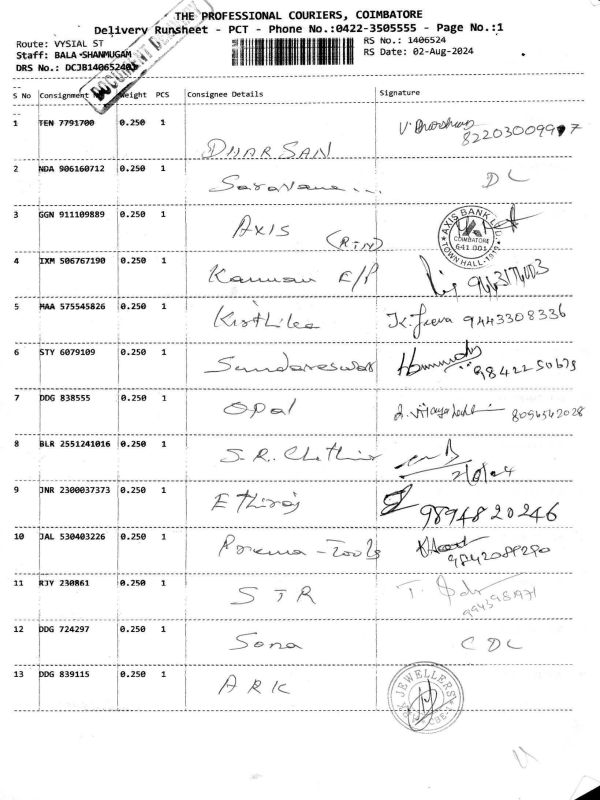 THE PROFESSIONAL COURIERS, COIMBATORE
Delivery Runsheet - PCT - Phone No.:0422-3505555 - Page No.:1
Route: VYSIAL ST
RS No.: 1406524
Staff: BALA SHANMUGAM
RS Date: 02-Aug-2024
DRS No.: DCJB1406524
DOCUMENT
S No Consignment Weight PCS Consignee Details Signature
1 TEN 7791700 0.250 1 DHARSAN V. Dharshan
8220300997
2 NDA 906160712 0.250 1 Saravana... DC
3 GGN 911109889 0.250 1 AXIS (RTN) AXIS BANK LTD. COIMBATORE 641 001 TOWN HALL-1919
4 IXM 506767190 0.250 1 Kannan E/P
5 MAA 575545826 0.250 1 Kirthika K. Jeeva 9443308336
6 STY 6079109 0.250 1 Sundareswar 9842250679
7 DDG 838555 0.250 1 Opal 8094542028
8 BLR 2551241016 0.250 1 S.R. Chettiar
2/8/24
9 JNR 2300037373 0.250 1 Ethiraj 9894820246
10 JAL 530403226 0.250 1 Poxema-Tools 9842089290
11 RJY 230861 0.250 1 STR T.
9943981971
12 DDG 724297 0.250 1 Sona CDC
13 DDG 839115 0.250 1 ARK ARK JEWELLERS CBE-1